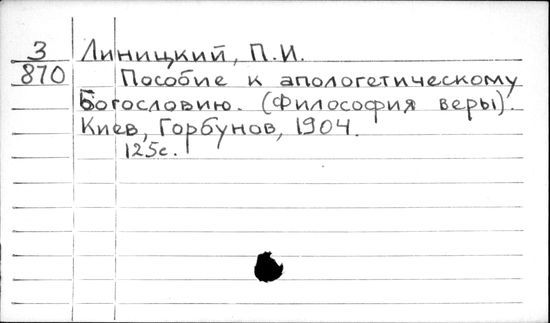 З Линицкий, П.И.
870 Пособие к апологетическому
Богословию. (Философия веры).
Киев, Горбунов, 1904.
125с.